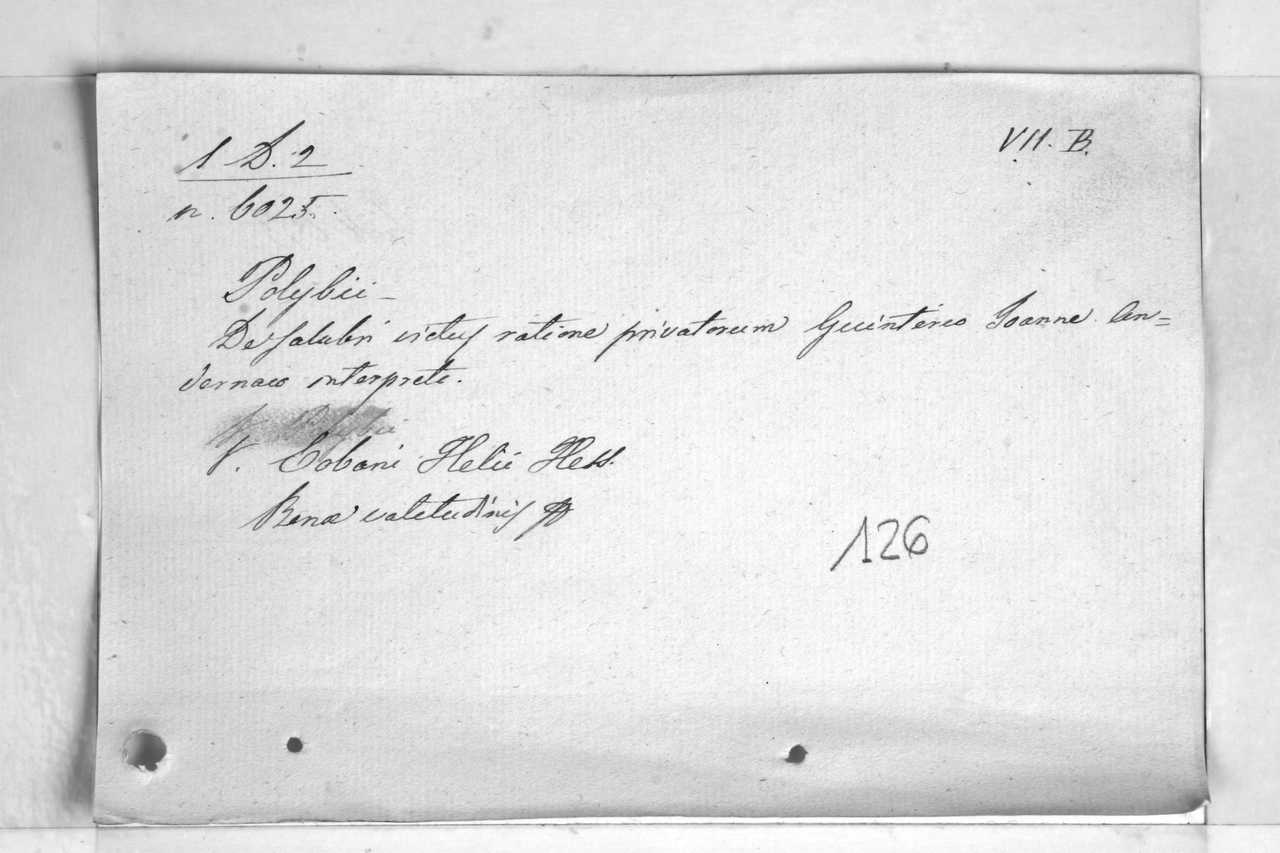 1 D. 2
VII. B.
n. 6025.
Polybii –
De salubri victus ratione privatorum Guinterio Joanne An=
dernaco interprete.
V. Eobani Helii Hess.
Bonæ valetudinis
126